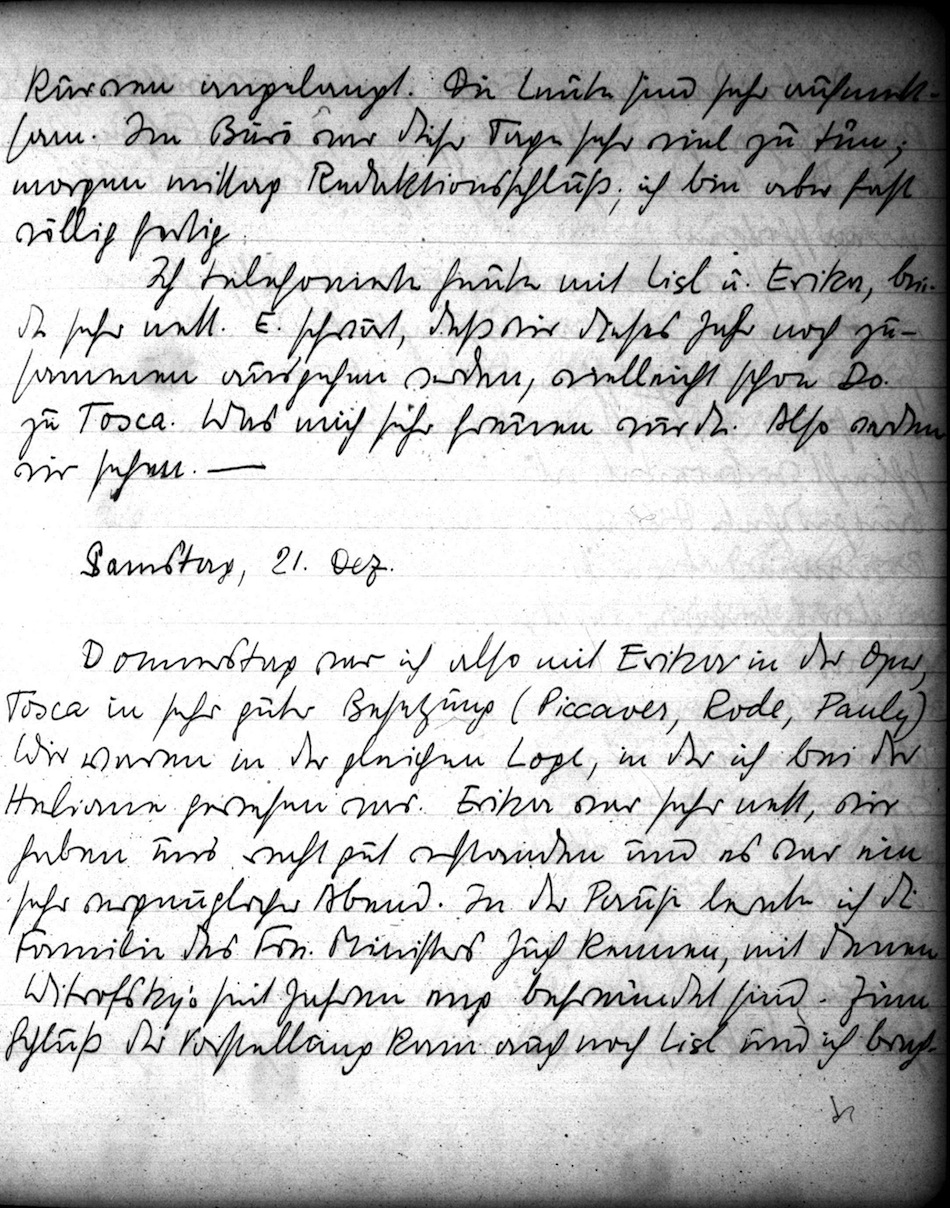 Kursen angelangt. Die Leute sind sehr aufmerk-
sam. Im Büro war diese Tage sehr viel zu tun;
morgen mittag Redaktionsschluß; ich bin aber fast
völlig fertig.
Ich telefonierte heute mit Lisl u. Erika, bei-
de sehr nett. E. schwört, daß wir dieses Jahr noch zu-
sammen ausgehen werden, vielleicht schon Do.
zu Tosca. Was mich sehr freuen würde. Also werden
wir sehen. —
Samstag, 21. Dez.
Donnerstag war ich also mit Erika in der Oper,
Tosca in sehr guter Besetzung (Piccaver, Rode, Pauly)
Wir waren in der gleichen Loge, in der ich bei der
Heliane gewesen war. Erika war sehr nett, wir
haben uns recht gut verstanden und es war ein
sehr vergnüglicher Abend. In der Pause lernte ich die
Familie des Fin. Ministers Juch kennen, mit denen
Witrofsky's seit Jahren eng befreundet sind. Zum
Schluß der Vorstellung kam auch noch Lisl und ich brach-